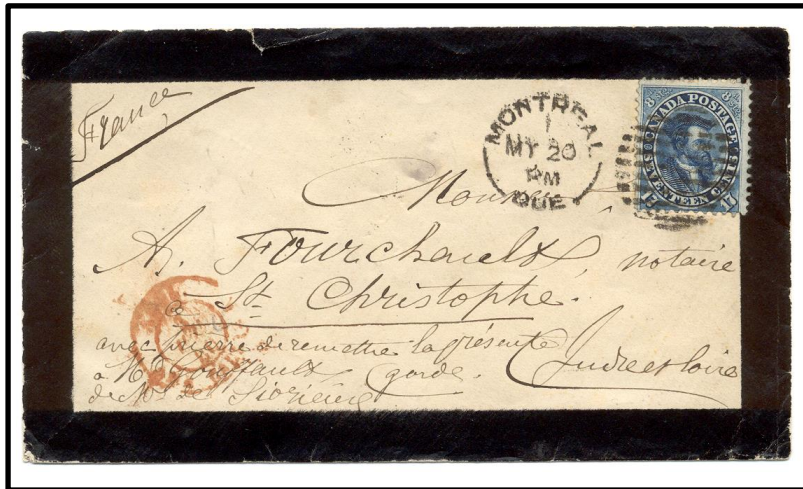 France
MONTREAL
1
MY 20
PM
QUE
CANADA POSTAGE
SEVENTEEN CENTS
8
17
Monsieur
A. Fourchault, notaire
à
St Christophe.
avec prière de remettre la présente
à Mr garde. Indre et Loire
de Mr de